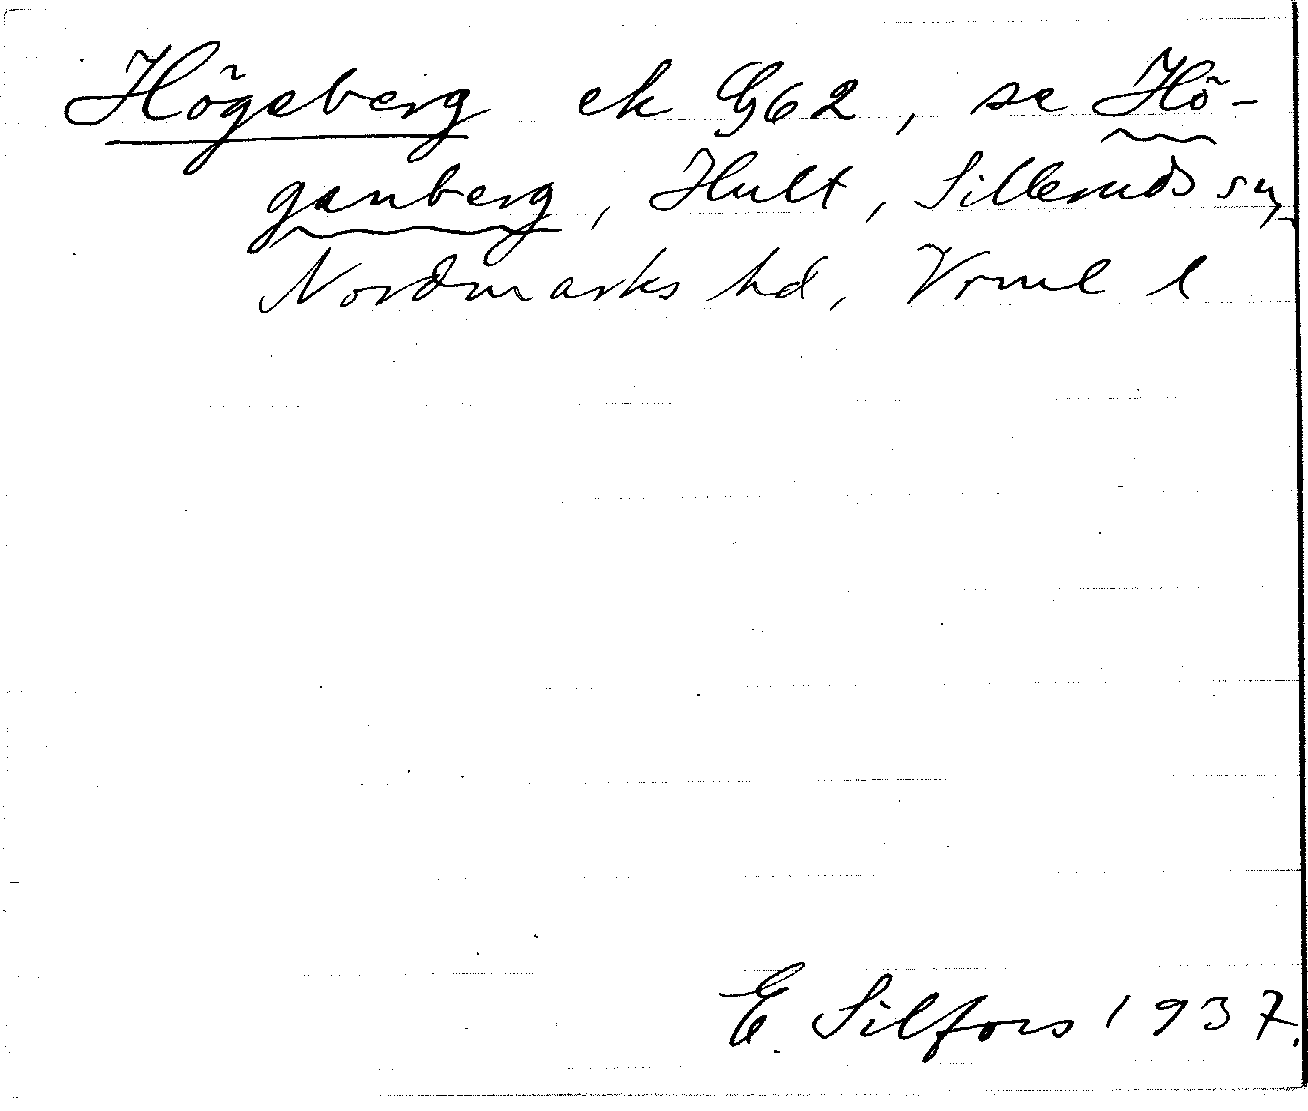 Högeberg ek G62, se Hö-
ganberg, Hult, Silleruds sn,
Nordmarks hd, Vrml l
E. Silfors 1937.